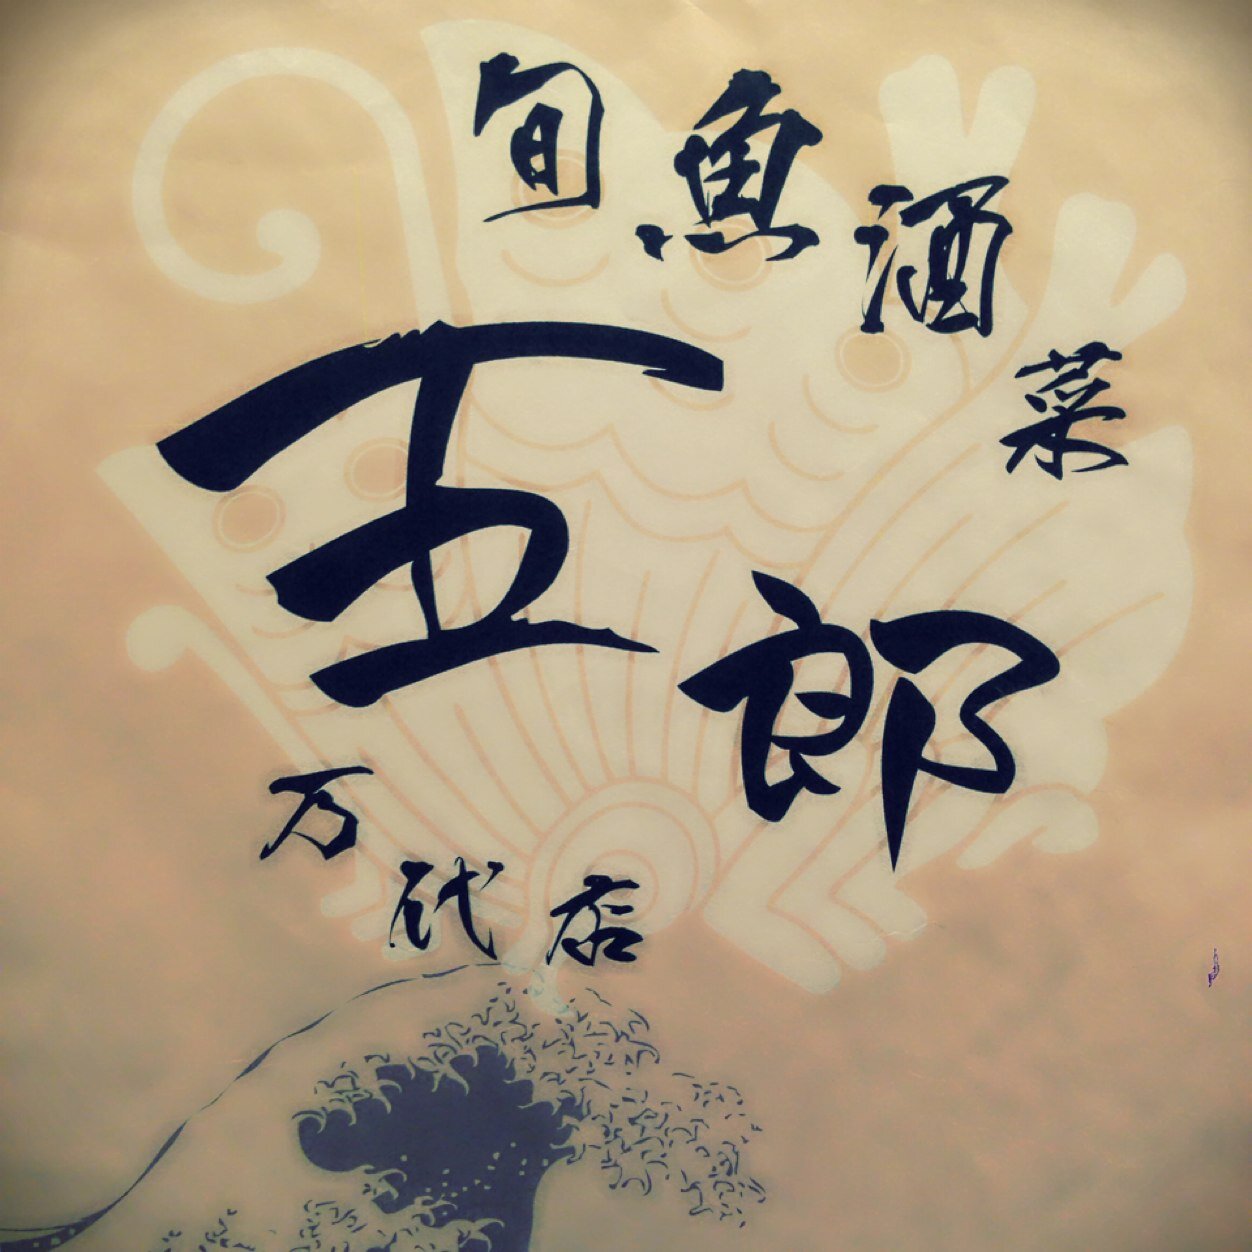 旬魚酒菜
五郎
万代店